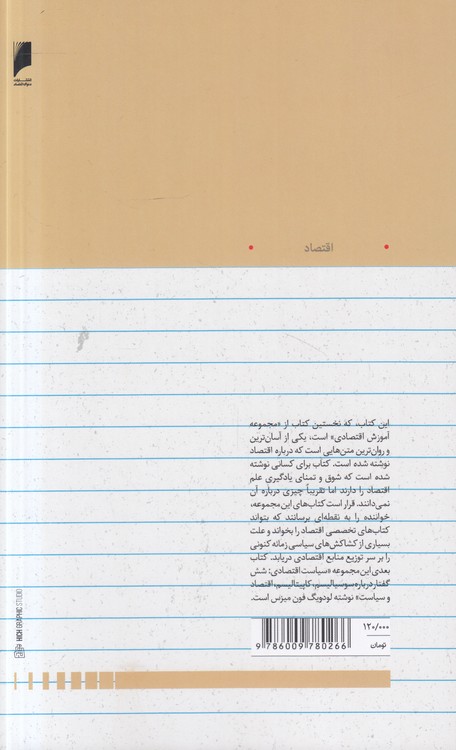 انتشارات
دنیای اقتصاد
اقتصاد
این کتاب، که نخستین کتاب از «مجموعه
آموزش اقتصادی» است، یکی از آسان‌ترین
و روان‌ترین متن‌هایی است که درباره اقتصاد
نوشته شده است. کتاب برای کسانی نوشته
شده است که شوق و تمنای یادگیری علم
اقتصاد را دارند اما تقریباً چیزی درباره آن
نمی‌دانند. قرار است کتاب‌های این مجموعه،
خواننده را به نقطه‌ای برسانند که بتواند
کتاب‌های تخصصی اقتصاد را بخواند و علت
بسیاری از کشاکش‌های سیاسی زمانه کنونی
را بر سر توزیع منابع اقتصادی دریابد. کتاب
بعدی این مجموعه «سیاست اقتصادی: شش
گفتار درباره سوسیالیسم، کاپیتالیسم، اقتصاد
و سیاست» نوشته لودویگ فون میزس است.
۱۲۰/۰۰۰
تومان
9 786009 780266
HIGH GRAPHIC STUDIO